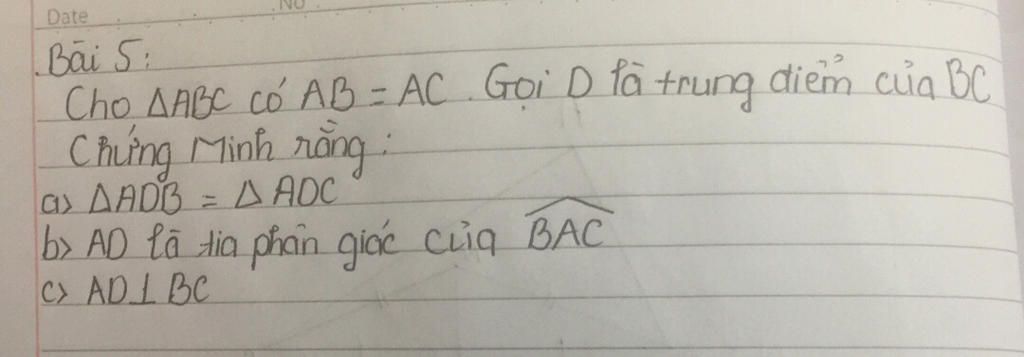 Date
No
Bài 5:
Cho ΔABC có AB = AC. Gọi D là trung điểm của BC
Chứng Minh rằng:
a) ΔADB = ΔADC
b) AD là tia phân giác của \widehat{BAC}
c) AD⊥BC